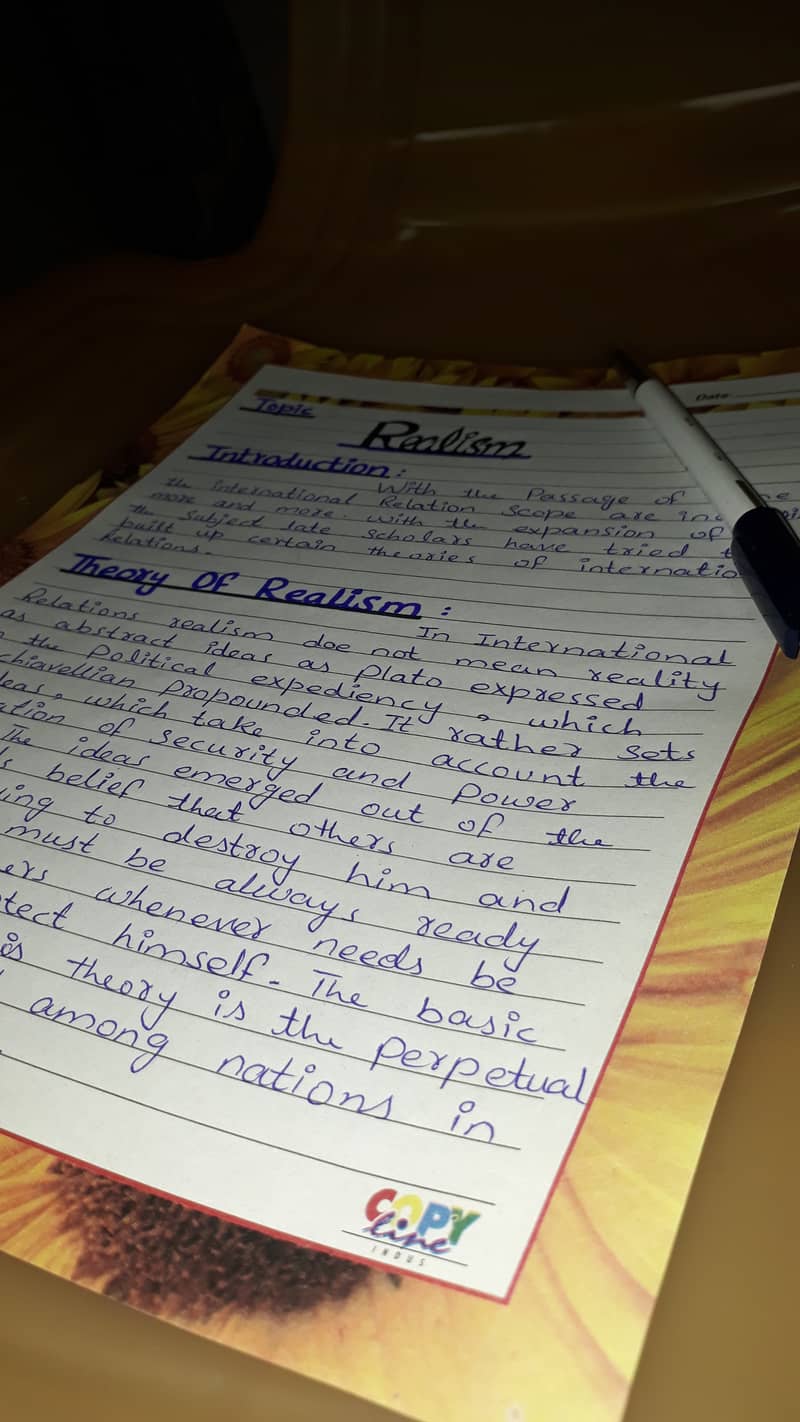 Date
Topic
Realism
Introduction :
With the Passage of
the international Relation Scope are inc
more and more. with the expansion of
the Subject late scholars have tried t
built up certain theories of internatio
Relations.
Theory Of Realism :
In International
Relations realism doe not mean reality
as abstract ideas as Plato expressed
the political expediency, which
chiavellian Propounded. It rather sets
deas, which take into account the
ation of security and Power
The ideas emerged out of the
s belief that others are
ing to destroy him and
must be always ready
ers whenever needs be
tect himself. The basic
is theory is the perpetual
among nations in
COPY
line
INDUS